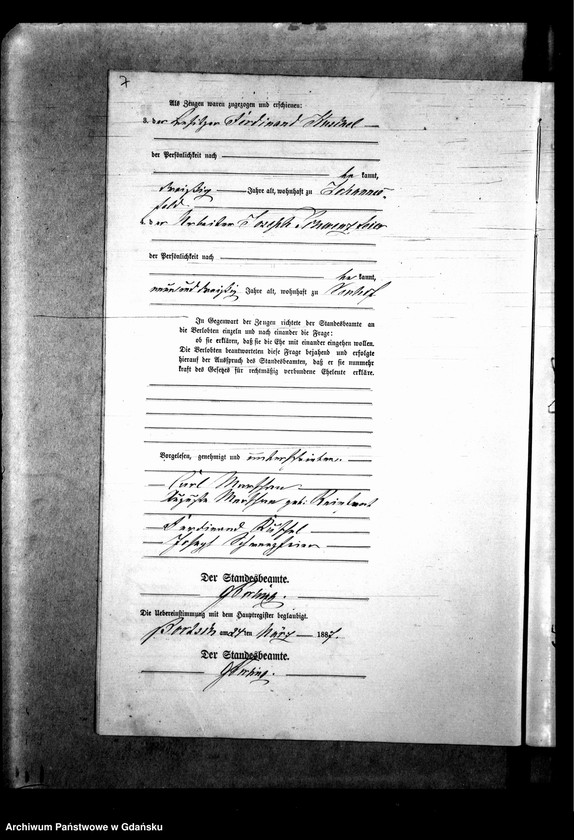 7
Als Zeugen waren zugezogen und erschienen:
3. der Besitzer Ferdinand Kuschel
der Persönlichkeit nach
be kannt,
dreißig Jahre alt, wohnhaft zu Johannes-
feld.
4. der Arbeiter Joseph
der Persönlichkeit nach
be kannt,
neunund dreißig Jahre alt, wohnhaft zu
In Gegenwart der Zeugen richtete der Standesbeamte an
die Verlobten einzeln und nach einander die Frage:
ob sie erklären, daß sie die Ehe mit einander eingehen wollen.
Die Verlobten beantworteten diese Frage bejahend und erfolgte
hierauf der Ausspruch des Standesbeamten, daß er sie nunmehr
kraft des Gesetzes für rechtmäßig verbundene Eheleute erkläre.
Vorgelesen, genehmigt und unterschrieben.
Carl
Auguste geb:
Ferdinand Kuschel
Joseph
Der Standesbeamte.
Die Uebereinstimmung mit dem Hauptregister beglaubigt.
am 24ten März 1887.
Der Standesbeamte.
Archiwum Państwowe w Gdańsku